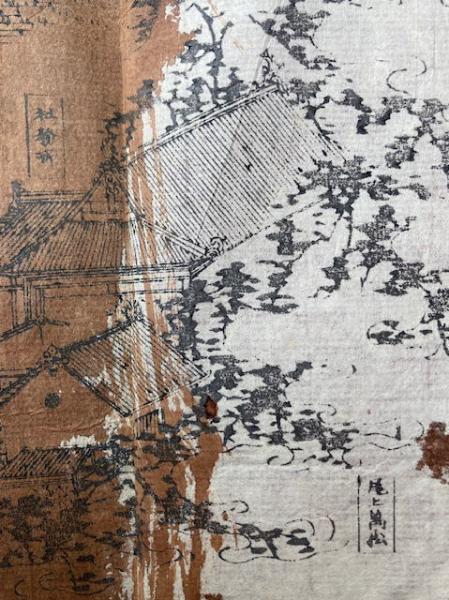 社務所
尾上萬松